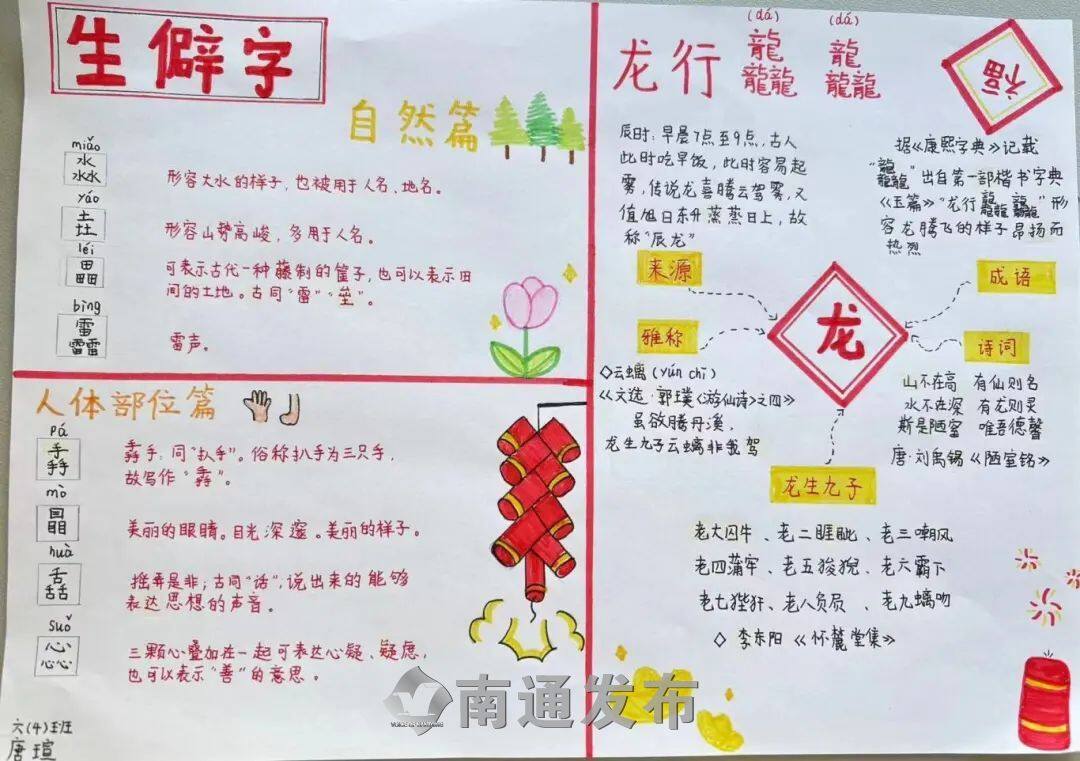 生僻字
自然篇
miǎo
淼
形容大水的样子，也被用于人名、地名。
yáo
垚
形容山势高峻，多用于人名。
léi
畾
可表示古代一种藤制的筐子，也可以表示田
间的土地。古同“雷”“垒”。
bìng
靐
雷声。
人体部位篇
pá
掱
掱手：同“扒手”。俗称扒手为三只手，
故写作“掱”。
mò
瞐
美丽的眼睛。目光深邃。美丽的样子。
huà
舙
摇弄是非；古同“话”，说出来的能够
表达思想的声音。
suǒ
惢
三颗心叠加在一起可表达心疑、疑虑，
也可以表示“善”的意思。
六(4)班
唐瑄
(dá) (dá)
龙行龘龘
福
辰时：早晨7点至9点，古人
此时吃早饭，此时容易起
雾，传说龙喜腾云驾雾，又
值旭日东升蒸蒸日上，故
称“辰龙”
来源
据《康熙字典》记载
“龘”出自第一部楷书字典
《玉篇》“龙行龘龘”形
容龙腾飞的样子昂扬而
热烈
成语
龙
雅称
◇云螭(yún chī)
《文选·郭璞《游仙诗》之四》
虽欲腾丹溪，
龙生九子云螭非我驾
诗词
山不在高 有仙则名
水不在深 有龙则灵
斯是陋室 唯吾德馨
唐·刘禹锡《陋室铭》
龙生九子
老大囚牛、老二睚眦、老三嘲风
老四蒲牢、老五狻猊、老六霸下
老七狴犴、老八负屃、老九螭吻
◇ 李东阳《怀麓堂集》
南通发布